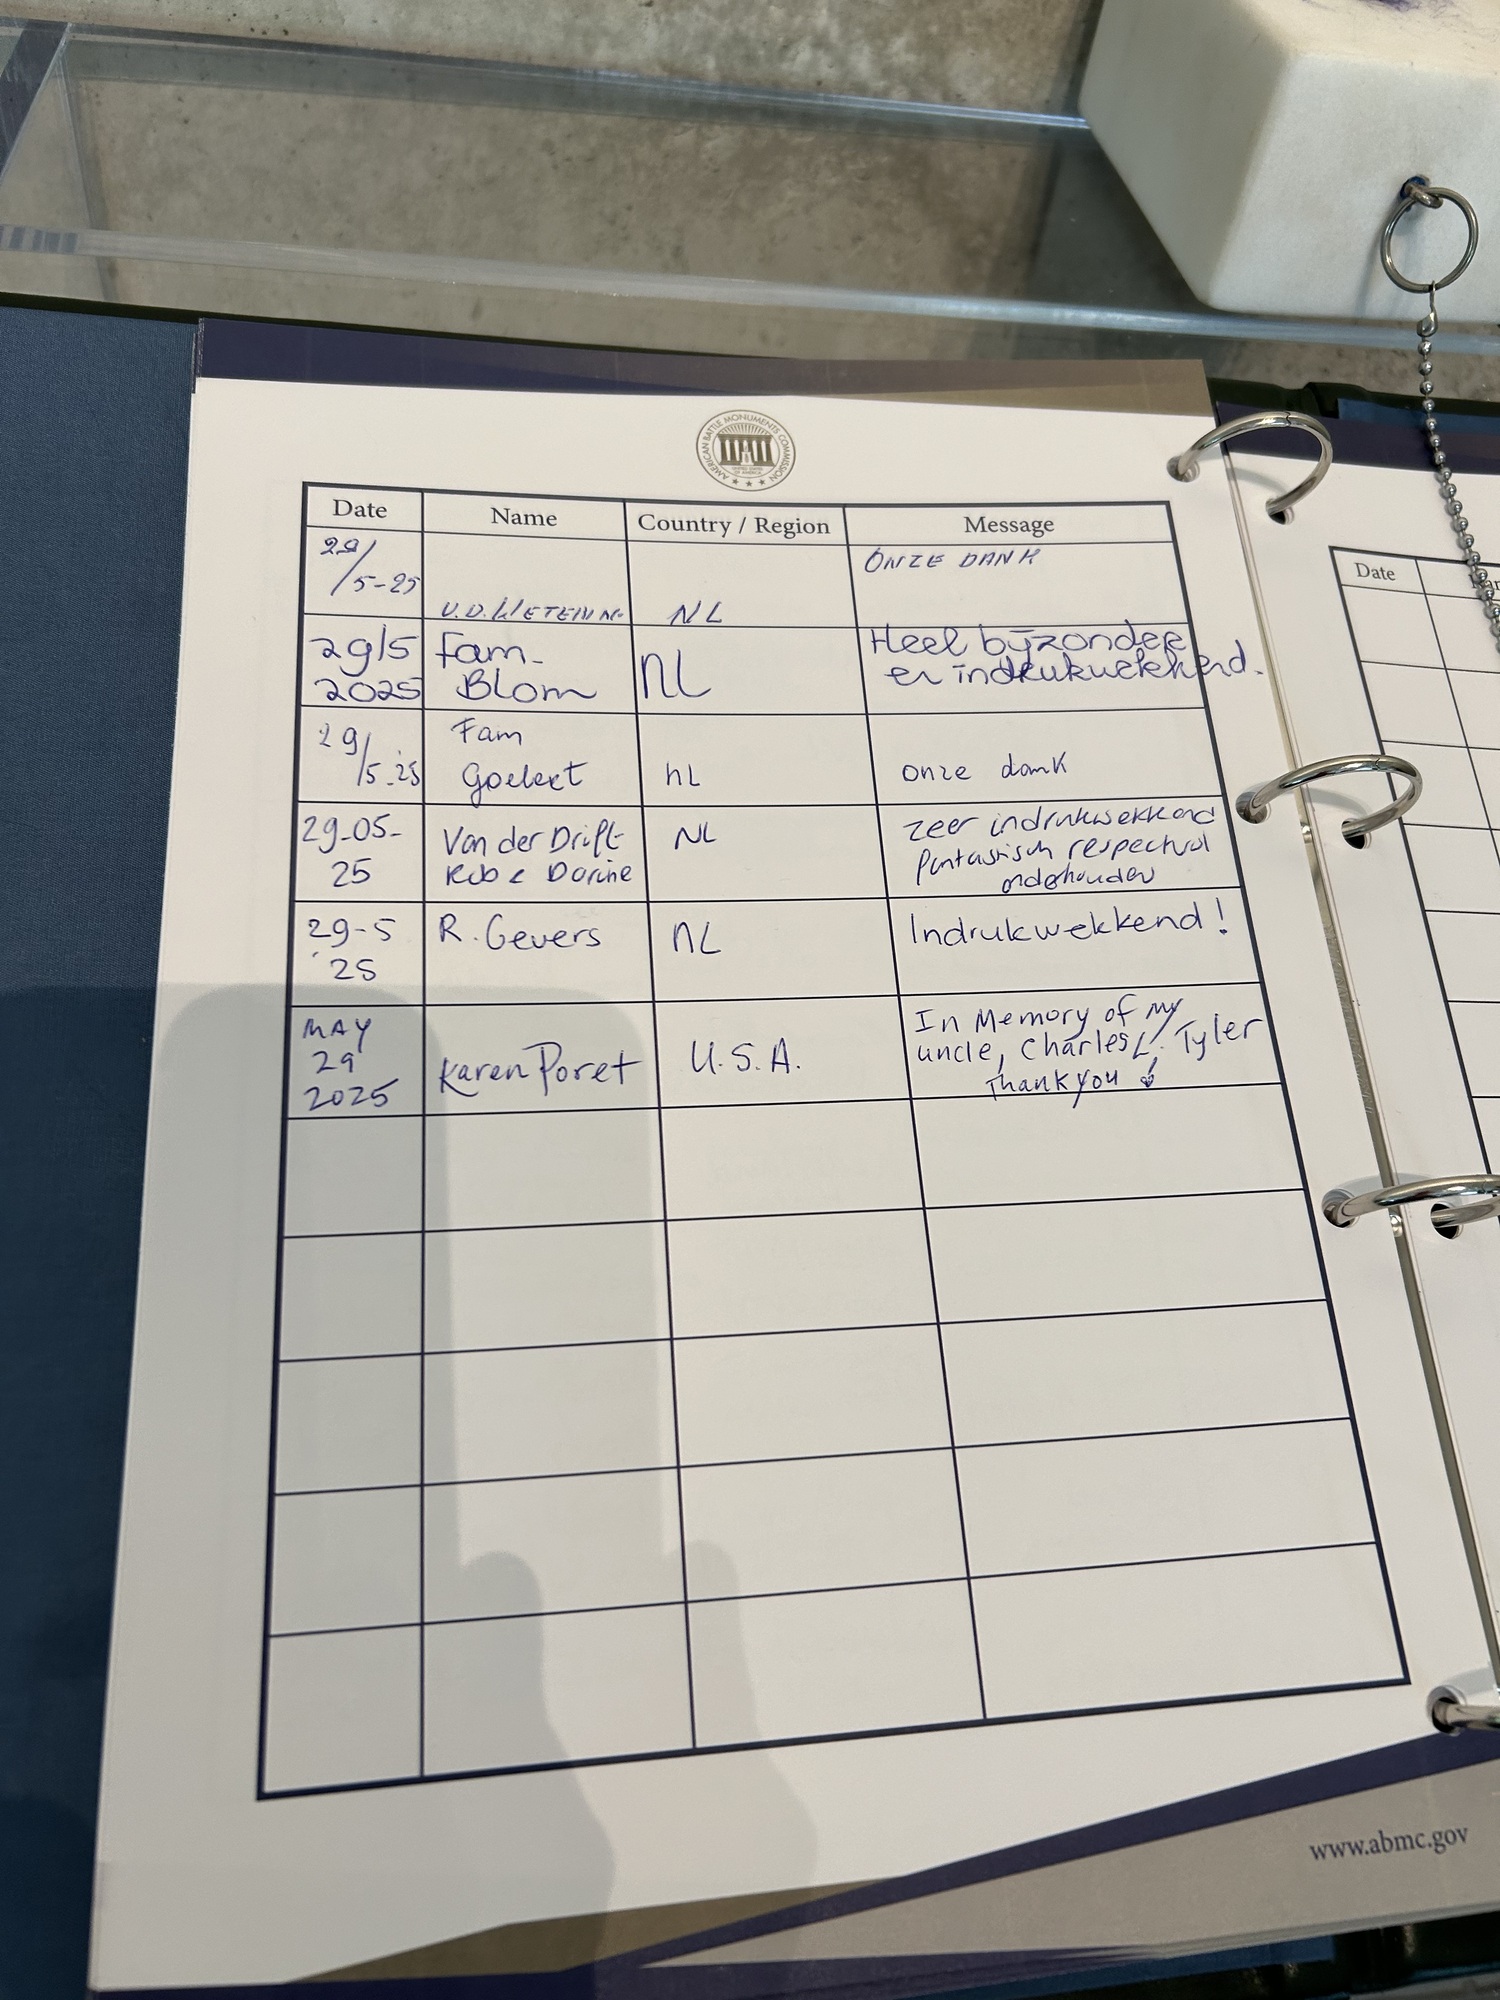 AMERICAN BATTLE MONUMENTS COMMISSION
UNITED STATES OF AMERICA
Date Name Country / Region Message
29/5-25 NL ONZE DANK
29/5 2025 Fam. Blom NL Heel bijzonder
en indrukwekkend.
29/5-25 Fam NL onze dank
29-05-25 Van der Drift NL zeer indrukwekkend
Rob & Dorine fantastisch respectvol
onderhouden
29-5 '25 R. Gevers NL Indrukwekkend!
MAY 29 2025 Karen Poret U.S.A. In Memory of my
uncle, Charles L. Tyler
Thank you
Date
www.abmc.gov